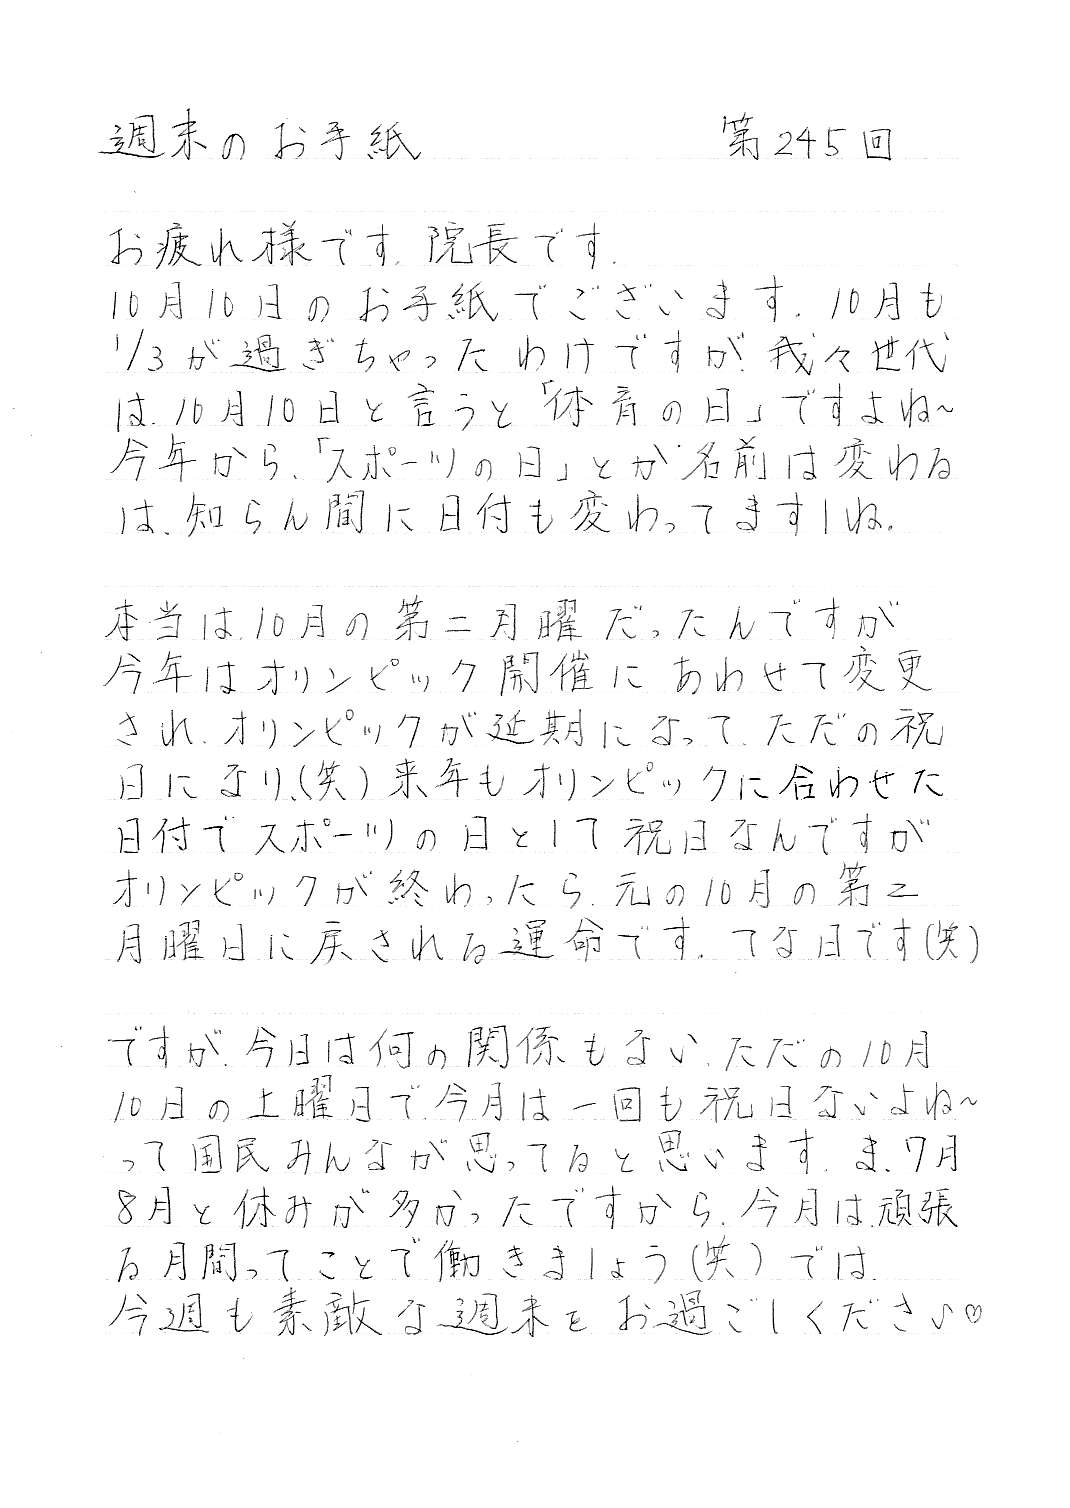 週末のお手紙 第245回
お疲れ様です、院長です。
10月10日のお手紙でございます。10月も
1/3が過ぎちゃったわけですが、我々世代
は、10月10日と言うと「体育の日」ですよね〜
今年から、「スポーツの日」とか名前は変わる
は、知らん間に日付も変わってますしね。
本当は10月の第二月曜だったんですが
今年はオリンピック開催にあわせて変更
され、オリンピックが延期になって、ただの祝
日になり、(笑)来年もオリンピックに合わせた
日付でスポーツの日として祝日なんですが
オリンピックが終わったら、元の10月の第二
月曜日に戻される運命です。てな日です(笑)
ですが、今日は何の関係もない、ただの10月
10日の土曜日で、今月は一回も祝日ないよね〜
って国民みんなが思ってると思います。ま、7月
8月と休みが多かったですから、今月は、頑張
る月間ってことで働きましょう(笑)では、
今週も素敵な週末をお過ごしください♡